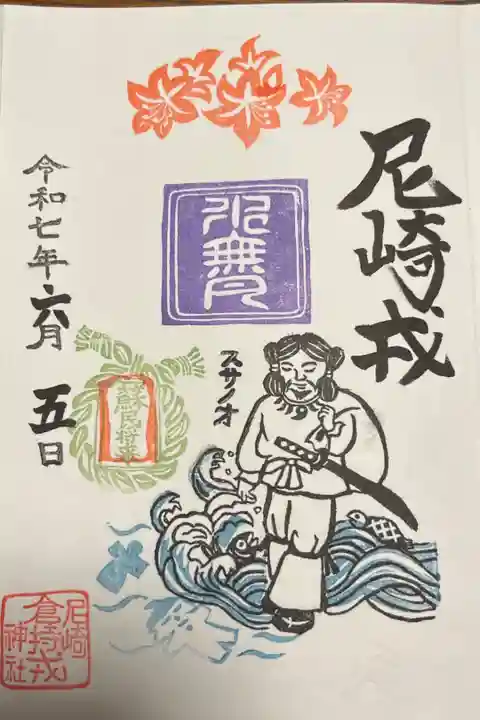 尼崎戎
水無月
スサノオ
令和七年六月五日
蘇民将来
尼崎
倉持戎
神社